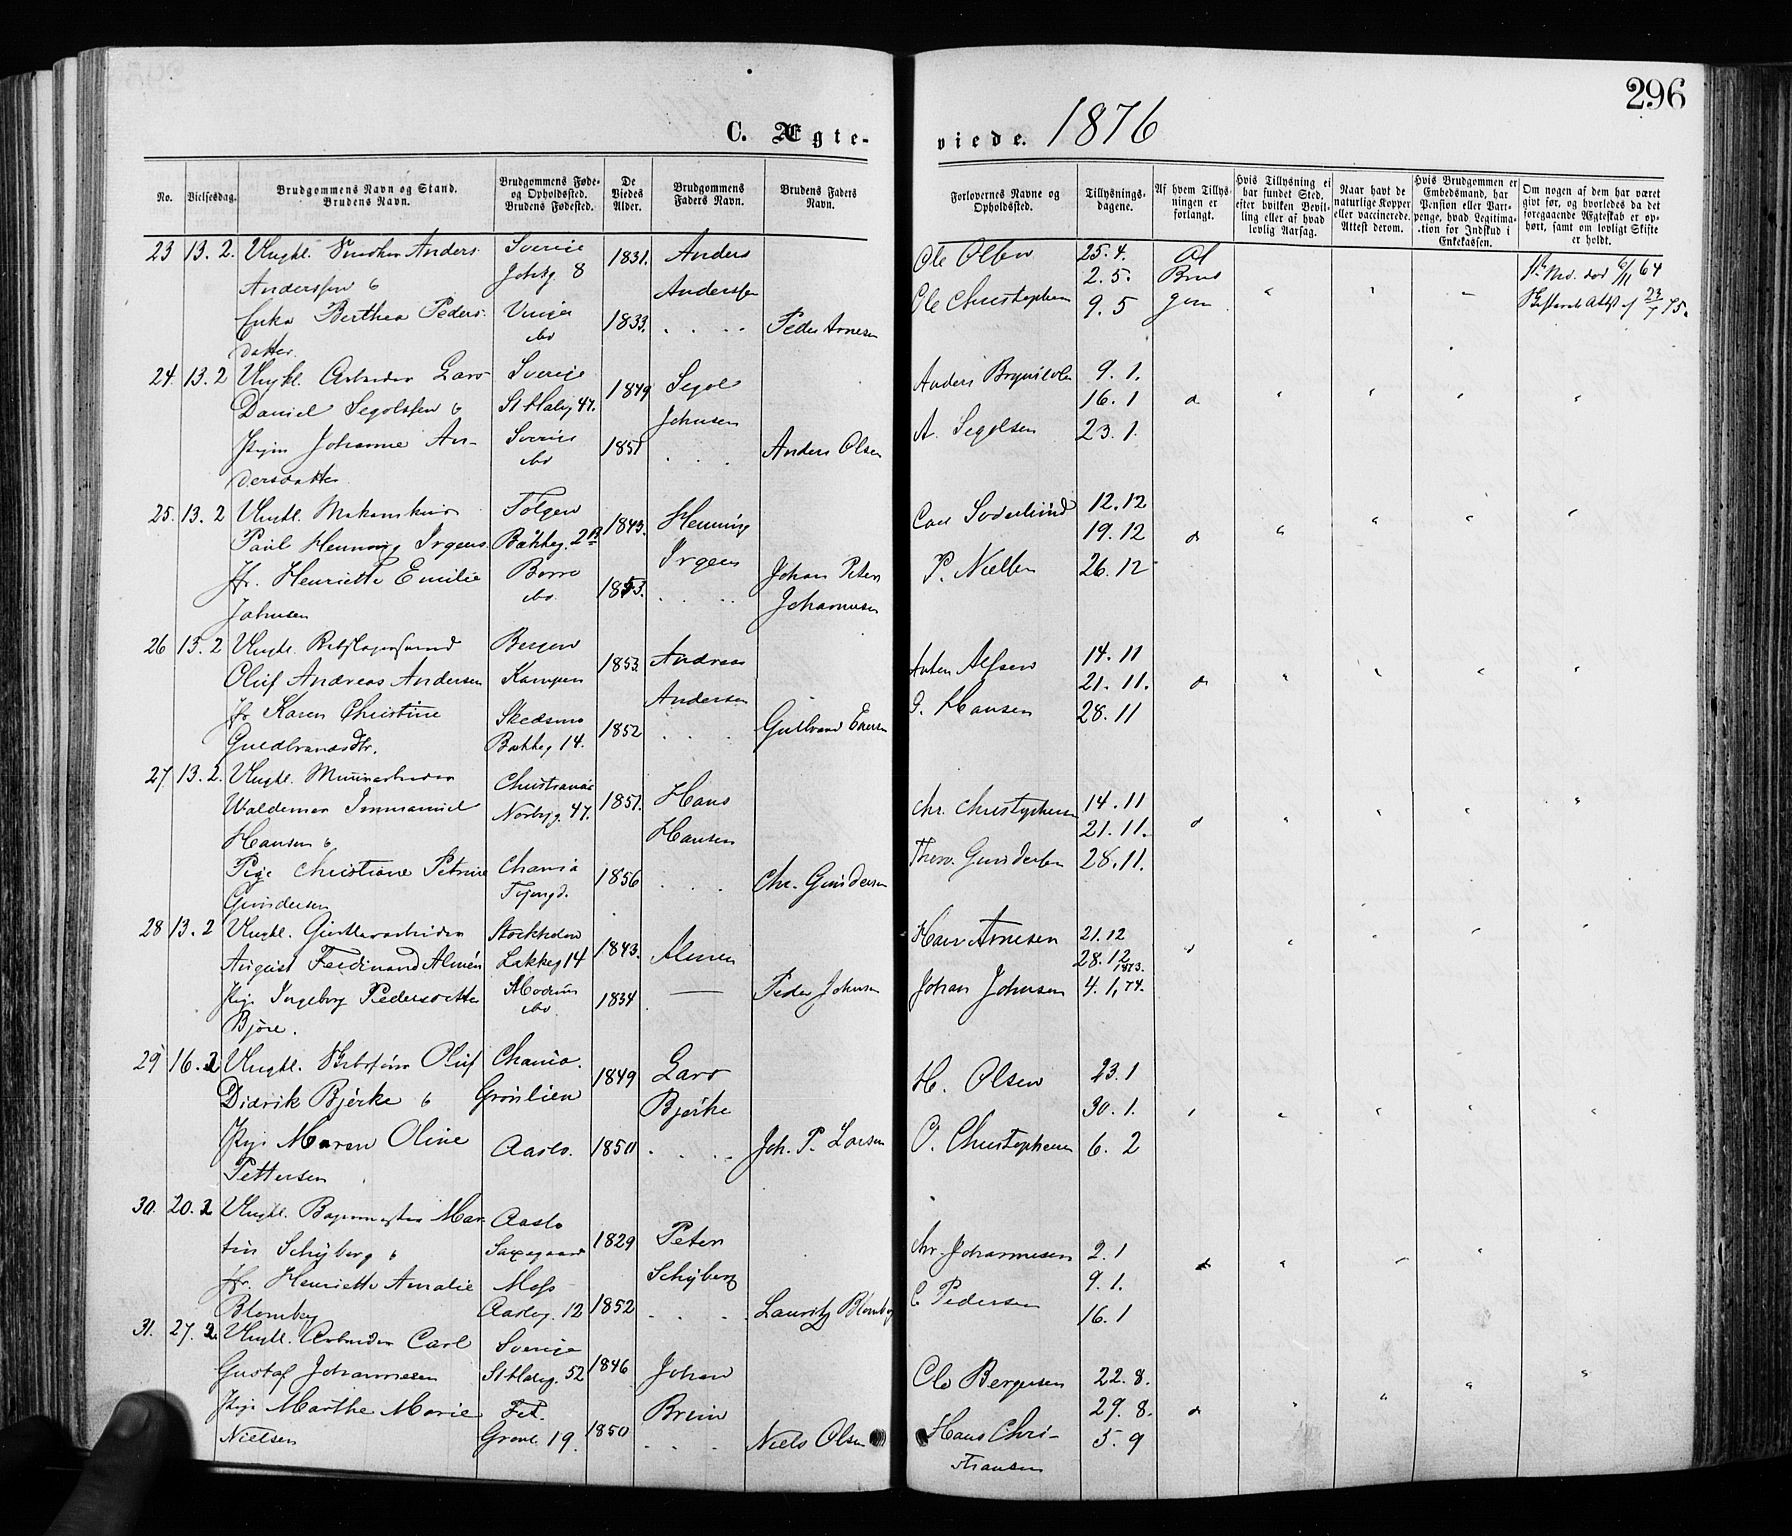 296
C. Ægte-
viede. 1876
No.
Vielsesdag.
Brudgommens Navn og Stand.
Brudens Navn.
Brudgommens Føde-
og Opholdssted.
Brudens Fødested.
De
Viedes
Alder.
Brudgommens
Faders Navn.
Brudens Faders
Navn.
Forlovernes Navne og
Opholdssted.
Tillysnings-
dagene.
Af hvem Tillys-
ningen er
forlangt.
Hvis Tillysning ei
har fundet Sted,
efter hvilken Bevil-
ling eller af hvad
lovlig Aarsag.
Naar havt de
naturlige Kopper
eller vaccinerede.
Attest derom.
Hvis Brudgommen er
Embedsmand, har
Pension eller Vart-
penge, hvad Legitima-
tion for Indskud i
Enkekassen.
Om nogen af dem har været
givt før, og hvorledes da det
foregaaende Ægteskab er op-
hørt, samt om lovligt Skifte
er holdt.
23 13. 2. Ungkl. Anders Sverige 1831. Anders Ole Olsen 25. 4.
Anderssen 8 Anderssen 2. 5.
Enke Berthea Peders- Vinger 1833. Peder Arnesen Ole Christophersen 9. 5
datter do
24. 13. 2 Ungkl. Arbeider Lars Sverige 1849 Segol Anders 9. 1.
Daniel Segolssen St. Halvg 47. Johnsen 16. 1
Pigen Johanne An- Sverige 1851 Anders Olsen A. Segolsen 23. 1.
dersdatter do
25. 13. 2 Ungkl. Maskinist 1843. Henning Carl Söderlund 12. 12
Paul Henning Irgens Bakkeg. Irgens 19. 12
Jfr. Henriette Emilie Borre 1853. Johan Peter P. Nielsen 26. 12
Johnsen do. Johannesen
26 13. 2 Ungkl. Bergen 1853. Andreas Anton Alfsen 14. 11
Oluf Andreas Andersen Kampen Andersen 21. 11.
Jfr. Karen Christine Skedsmo 1852 Hansen 28. 11
Guldbrandsdtr. Bakkeg 14.
27 13. 2. Ungkl. Christiania 1851. Hans Chr. Christophersen 14. 11
Waldemar Immanuel Norbyg. 47. Hansen 21. 11.
Hansen
Pige Christiane Petrine Chania 1856 Chr. Gundersen Gundersen 28. 11.
Gundersen
28 13. 2 Ungkl. Stockholm 1843. Almén Hans Arnesen 21. 12
August Ferdinand Almén Lakkeg 14 28. 12 1873.
Pige Ingeborg Pedersdatter Modum 1834 Peder Johnsen Johan Johnsen 4. 1, 74.
Björe. do
29 16. 2 Ungkl. Oluf Chania. 1849 Lars H. Olsen 23. 1
Didrik Bjerke Grönlien Bjerke 30. 1.
Pige Maren Oline Aaslo. 1850 Joh. P. Larsen O. Christophersen 6. 2
Pettersen
30. 20. 2 Ungkl. Bagermester Mar- Aaslo 1829 Peter Chr. Johannesen 2. 1
tin Schyberg Saxegaard Schyberg 9. 1.
Jfr. Henriette Amalie Moss 1852 Lauritz Blomberg C Pedersen 16. 1
Blomberg Aaslog. 12
31. 27. 2. Ungkl. Arbeider Carl Sverige 1846 Johan Ole Bergersen 22. 8.
Gustaf Johannesen St Halvg. 52 Bruun 29. 8.
Pige Marthe Marie Fet. 1850 Niels Olsen Hans Chri- 5. 9
Nielsen Grönl. 19. stiansen